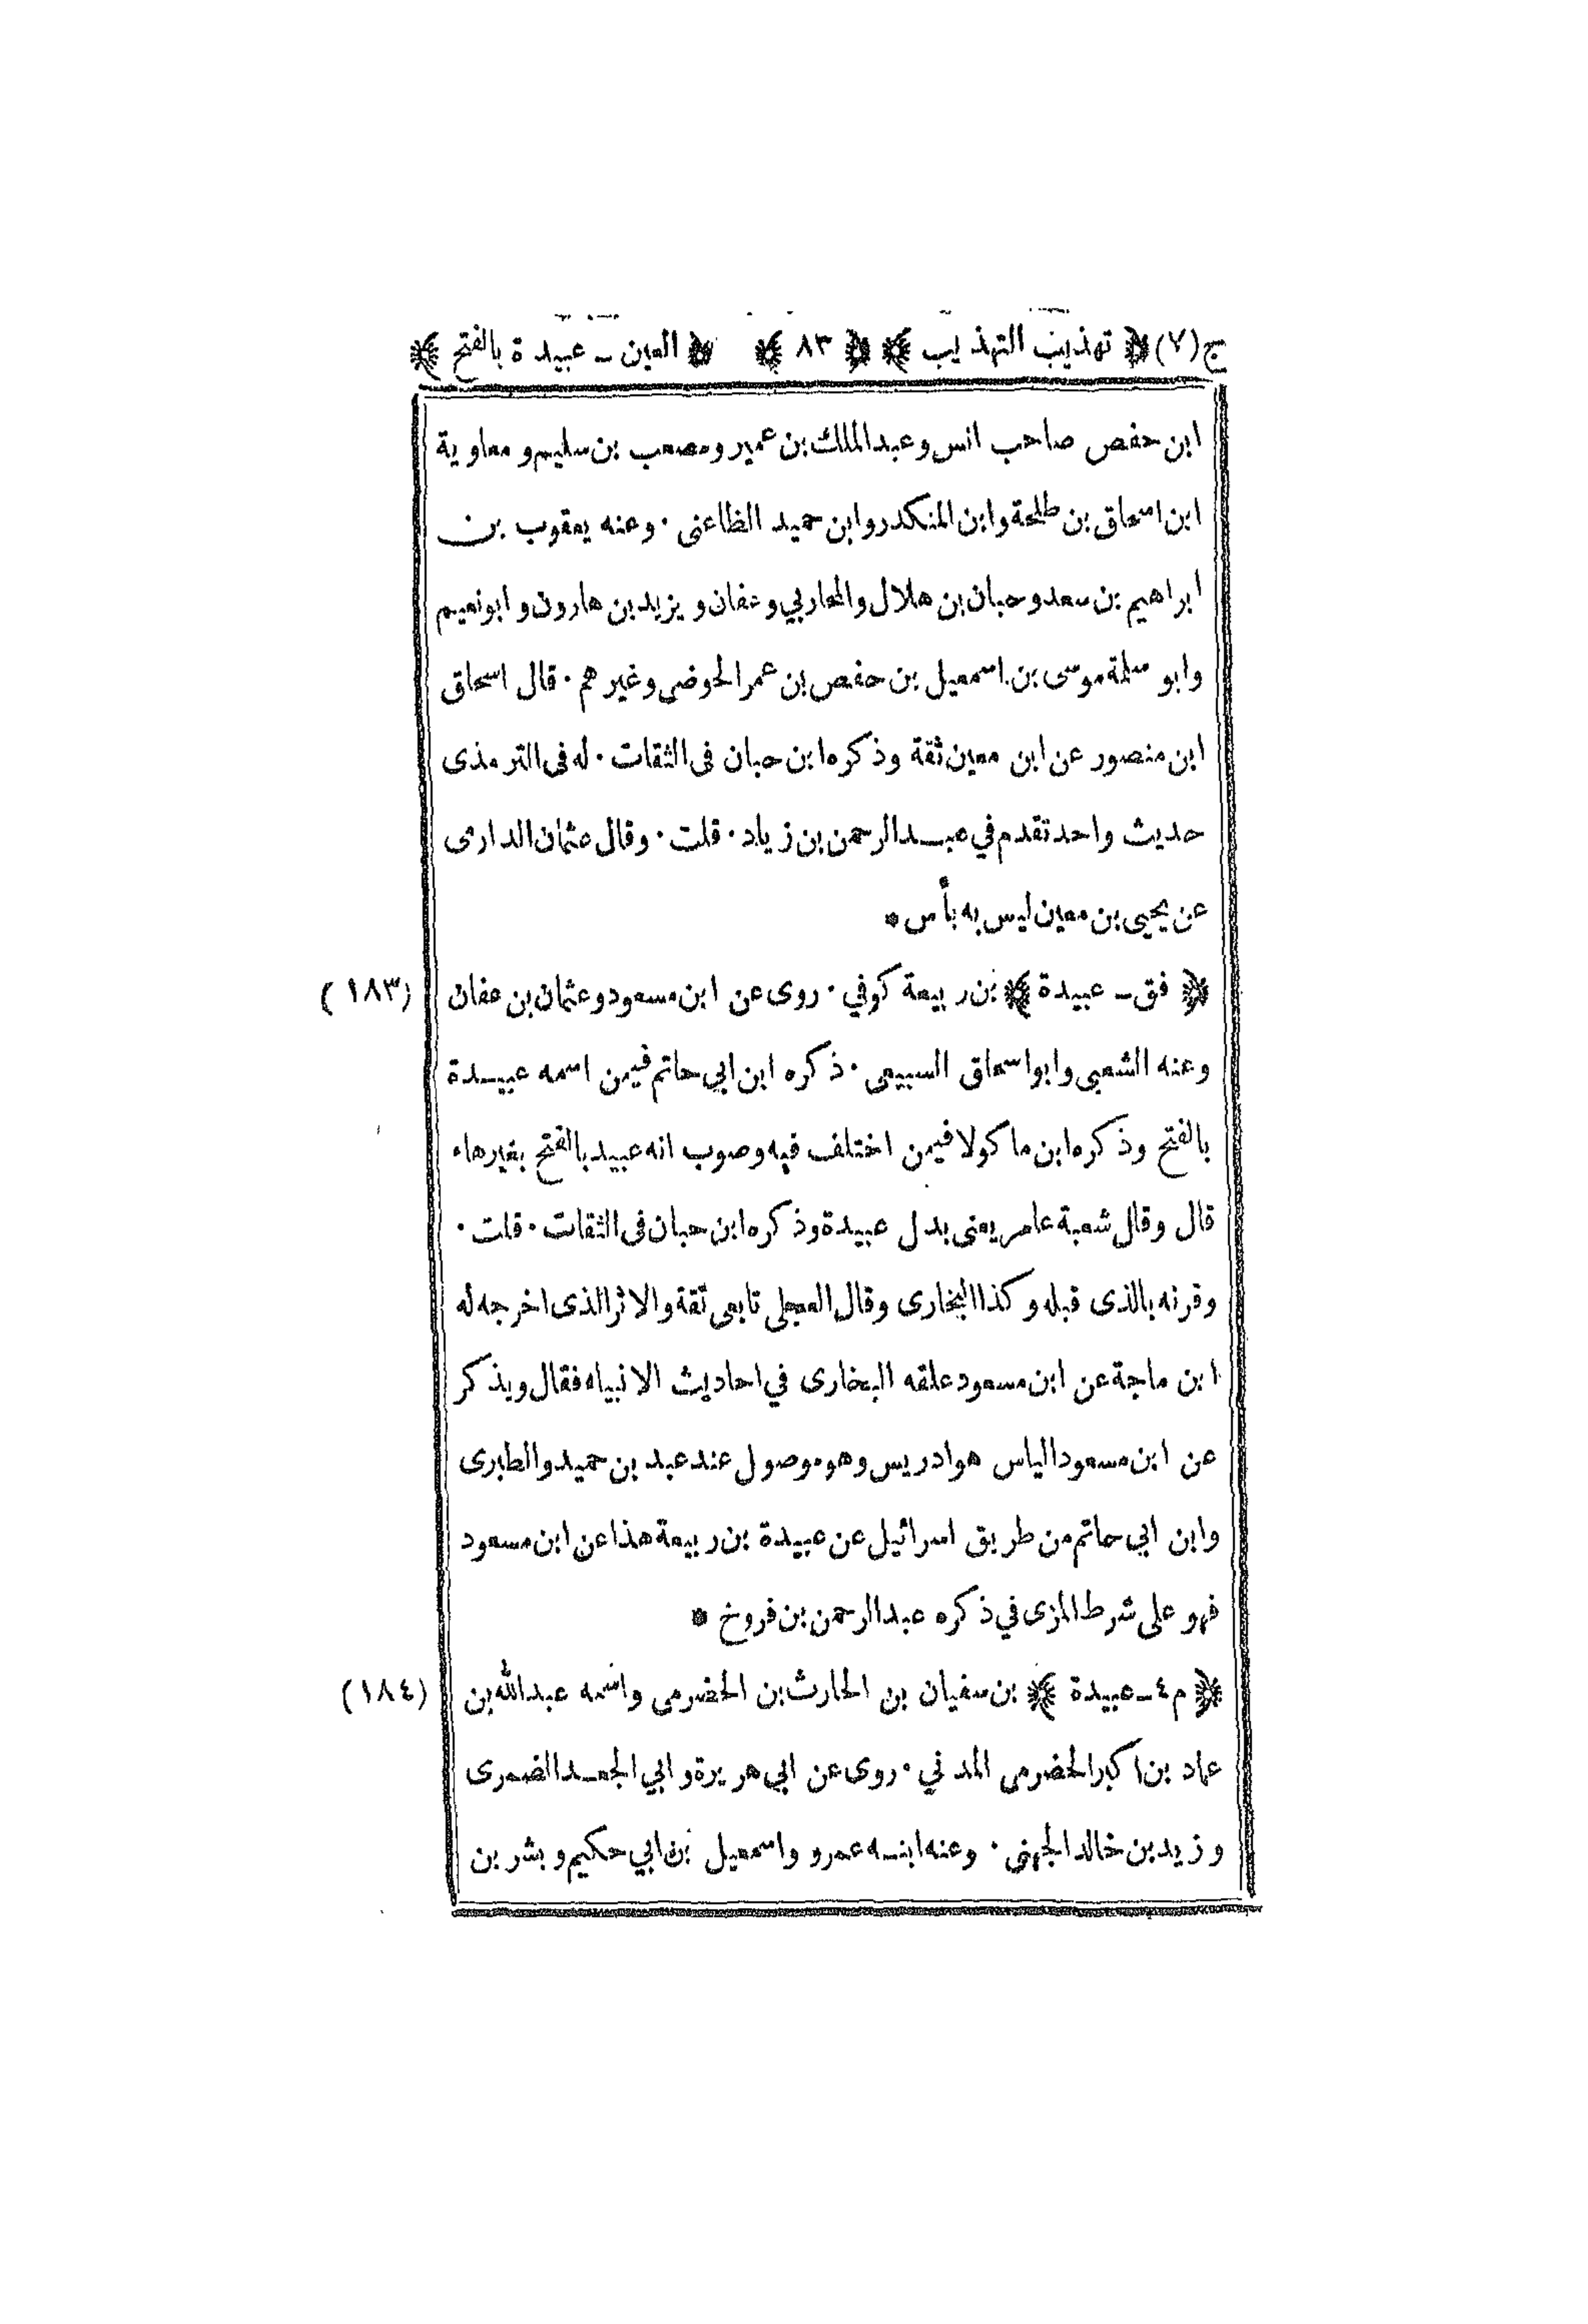 ج(٧) ﴿ تهذيب التهذيب ﴾ ﴿ ٨٣ ﴾ ﴿ العين ـ عبيدة بالفتح ﴾
ابن حفص صاحب انس وعبد الملك بن عمير ومصعب بن سليم و معاوية
ابن اسحاق بن طلحة وابن المنكدر وابن حميد الظاعنى ٠ وعنه يعقوب بن
ابراهيم بن سعد وحبان بن هلال والمحاربي وعفان و يزيد بن هارون و ابونعيم
وابو سلمة موسى بن اسمعيل بن حفص بن عمر الحوضي وغيرهم ٠ قال اسحاق
ابن منصور عن ابن معين ثقة وذكره ابن حبان فى الثقات ٠ له فى الترمذى
حديث واحد تقدم في عبد الرحمن بن زياد ٠ قلت ٠ وقال عثمان الدارى
عن يحيى بن معين ليس به بأس *
﴿ فق ـ عبيدة ﴾ بن ربيعة كوفي ٠ روى عن ابن مسعود وعثمان بن عفان (١٨٣)
وعنه الشعبي وابو اسحاق السبيعى ٠ ذكره ابن ابي حاتم فيمن اسمه عبيدة
بالفتح وذكره ابن ماكولا فيمن اختلف فيه وصوب انه عبيد بالفتح بغيرهاء
قال وقال شعبة عامر يعنى بدل عبيدة وذكره ابن حبان فى الثقات ٠ قلت ٠
وقرنه بالذى قبله وكذا البخارى وقال العجلى تابعى ثقة والاثر الذى اخرجه له
ابن ماجة عن ابن مسعود علقه البخارى في احاديث الانبياء فقال ويذكر
عن ابن مسعود الياس هو ادريس وهو موصول عند عبد بن حميد والطبرى
وابن ابي حاتم من طريق اسرائيل عن عبيدة بن ربيعة هذا عن ابن مسعود
فهو على شرط المزى في ذكره عبد الرحمن بن فروخ *
﴿ م٤ ـ عبيدة ﴾ بن سفيان بن الحارث بن الحضرمى واسمه عبد الله بن (١٨٤)
عماد بن اكبر الحضرمى المدني ٠ روى عن ابي هريرة و ابي الجعد الضمرى
و زيد بن خالد الجهنى ٠ وعنه ابنه عمرو واسمعيل بن ابي حكيم و بشر بن